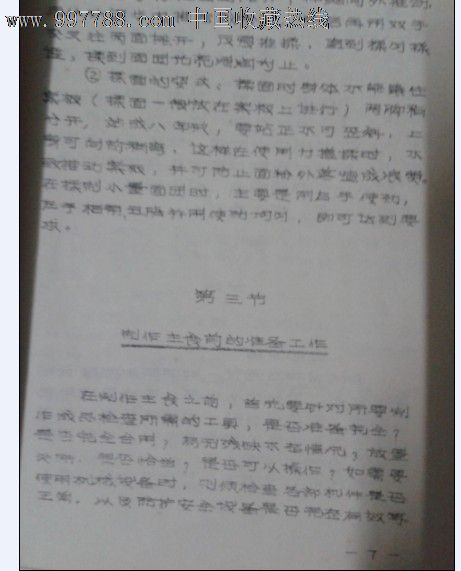 www.997788.com 中国收藏热线
交叉往两面摊开，反复推揉，直到揉匀揉
透，揉到面团光亮润滑为止。
②揉面的要求：揉面时身体不能靠住
案板（揉面一般放在案板上进行）两脚稍
分开，站成八字形，要站正不可歪斜，上
身可向前稍弯，这样在使用力推揉时，不
致推动案板，并可防止面粉外落造成浪费。
在揉制小量面团时，主要是用右手使劲，
左手相帮
即可达到要
求。
第三节
制作主食前的准备工作
在制作主食之前，首先要针对所要制
作成品检查所需的工具，是否准备齐全？
是否完全合用？有无残缺不全情况；放置
是否恰当？是否可以操作？如需要
使用机械设备时，则须检查各部机件是否
正常，以及防护安全设备是否完在有效等。
—7—